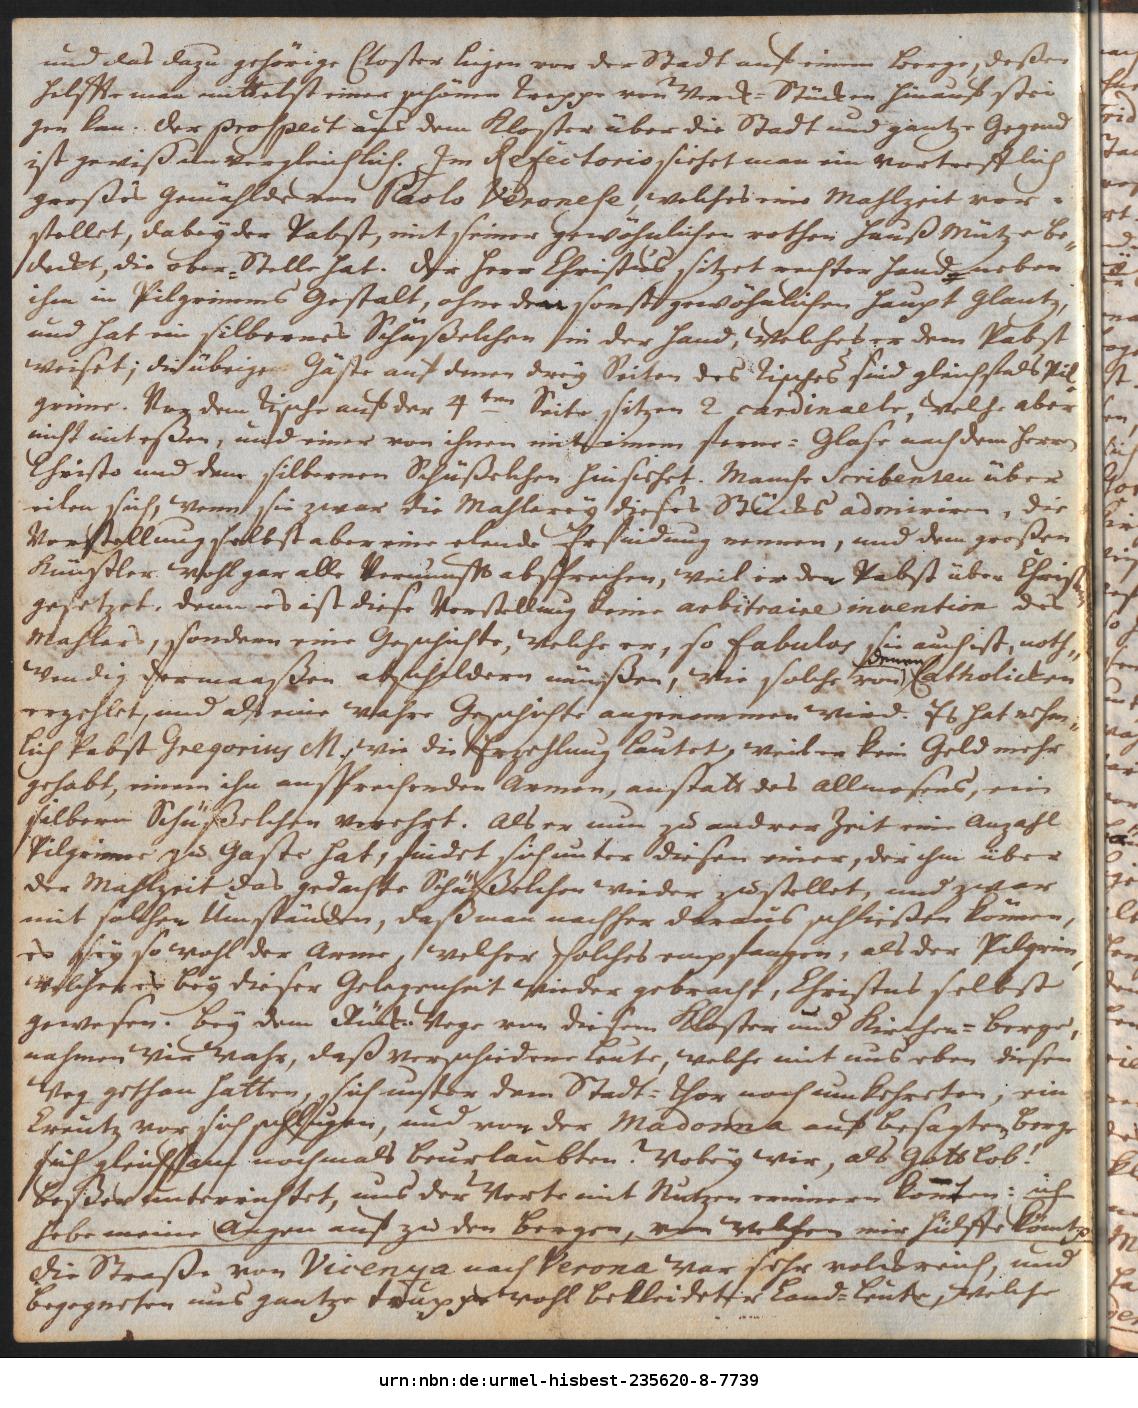 und das dazu gehörige Closter liegen vor der Stadt auf einem Berge, deßen
Helffte man mittelst einer schönen Treppe von Werck-Stücken hinauf stei
gen kan. Der prospect aus dem Kloster über die Stadt und gantze Gegend
ist gewiß unvergleichlich. Im Refectorio siehet man ein vortrefflich
großes Gemählde von Paolo Veronese, welches eine Mahlzeit vor-
stellet, dabey der Pabst, mit seiner gewöhnlichen rothen Hauß Mütze be-
deckt, die ober-Stelle hat. Der Herr Christus sitzet rechter Hand neben
ihm in Pilgrimms Gestalt, ohne den sonst gewöhnlichen Haupt Glantz,
und hat ein silbernes Schüßelchen in der Hand, welches er dem Pabst
weiset; die übrigen Gäste auf denen drey Seiten des Tisches sind gleichfals Pil-
grime. Vor dem Tische auf der 4ten Seite sitzen 2 cardinaele, welche aber
nicht mit eßen, und einer von ihnen mit einem ferne-Glase nach dem Herrn
Christo und dem silbernen Schüßelchen hinsiehet. Manche Scribenten über
eilen sich, wenn sie zwar die Mahlerey dieses Stücks admiriren, die
Vorstellung selbst aber eine elende Erfindung nennen, und dem großen
Künstler wohl gar alle Vernunfft absprechen, weil er den Pabst über Christum
gesetzet. denn es ist diese Vorstellung keine arbitraire invention des
Mahlers, sondern eine Geschichte, welche er, so fabulos sie auch ist, noth-
wendig dermaaßen abschildern müßen, wie solche von denen Catholicken
erzehlet, und als eine wahre Geschichte angenommen wird. Es hat nehm-
lich Pabst Gregorius M., wie die Erzehlung lautet, weil er kein Geld mehr
gehabt, einem ihn ansprechenden Armen, anstatt des Allmosens, ein
silbern Schüßelchen verehrt. Als er nun zu andrer Zeit eine Anzahl
Pilgrimme zu Gaste hat, findet sich unter diesen einer, der ihm über
der Mahlzeit das gedachte Schüßelchen wieder zustellet, und zwar
mit solchen Umständen, daß man nachher daraus schließen können,
es sey so wohl der Arme, welcher solches empfangen, als der Pilgrim,
welcher es bey dieser Gelegenheit wieder gebracht, Christus selbst
gewesen. Bey dem Rück-Wege von diesem Kloster und Kirchen-Berge,
nahmen wir wahr, daß verschiedene Leute, welche mit uns eben diesen
Weg gethan hatten, sich unter dem Stadt-Thor noch umkehreten, ein
Creutz vor sich schlugen, und von der Madonna auf besagten Berge
sich gleichsam nochmals beurlaubten. Wobey wir, als Gott Lob!
beßer unterrichtet, uns der Worte mit Nutzen erinnern konten: ich
hebe meine Augen auf zu den Bergen, von welchen mir Hülffe kömt.
die Straße von Vicenza nach Verona war sehr volckreich, und
begegneten uns gantze trupps wohl bekleideter Land-Leute, welche
urn:nbn:de:urmel-hisbest-235620-8-7739